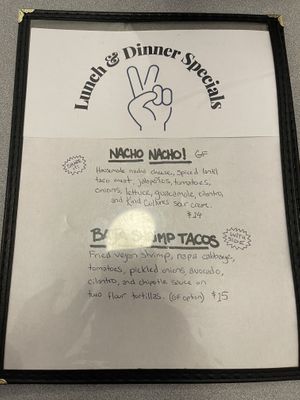 Lunch & Dinner Specials
NACHO NACHO! GF
SHARE IT!
Housemade nacho cheese, spiced lentil
taco meat, jalapeños, tomatoes,
onions, lettuce, guacamole, cilantro,
and Kind Cultures sour cream.
$14
SHRIMP TACOS
WITH SIDE
Fried vegan shrimp, napa cabbage,
tomatoes, pickled onions, avocado,
cilantro, and chipotle sauce on
two flour tortillas. (GF option) $15